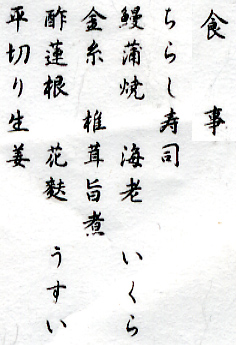 食 事
ちらし寿司
鰻蒲焼 海老 いくら
金糸 椎茸旨煮
酢蓮根 花麩 うすい
平切り生姜